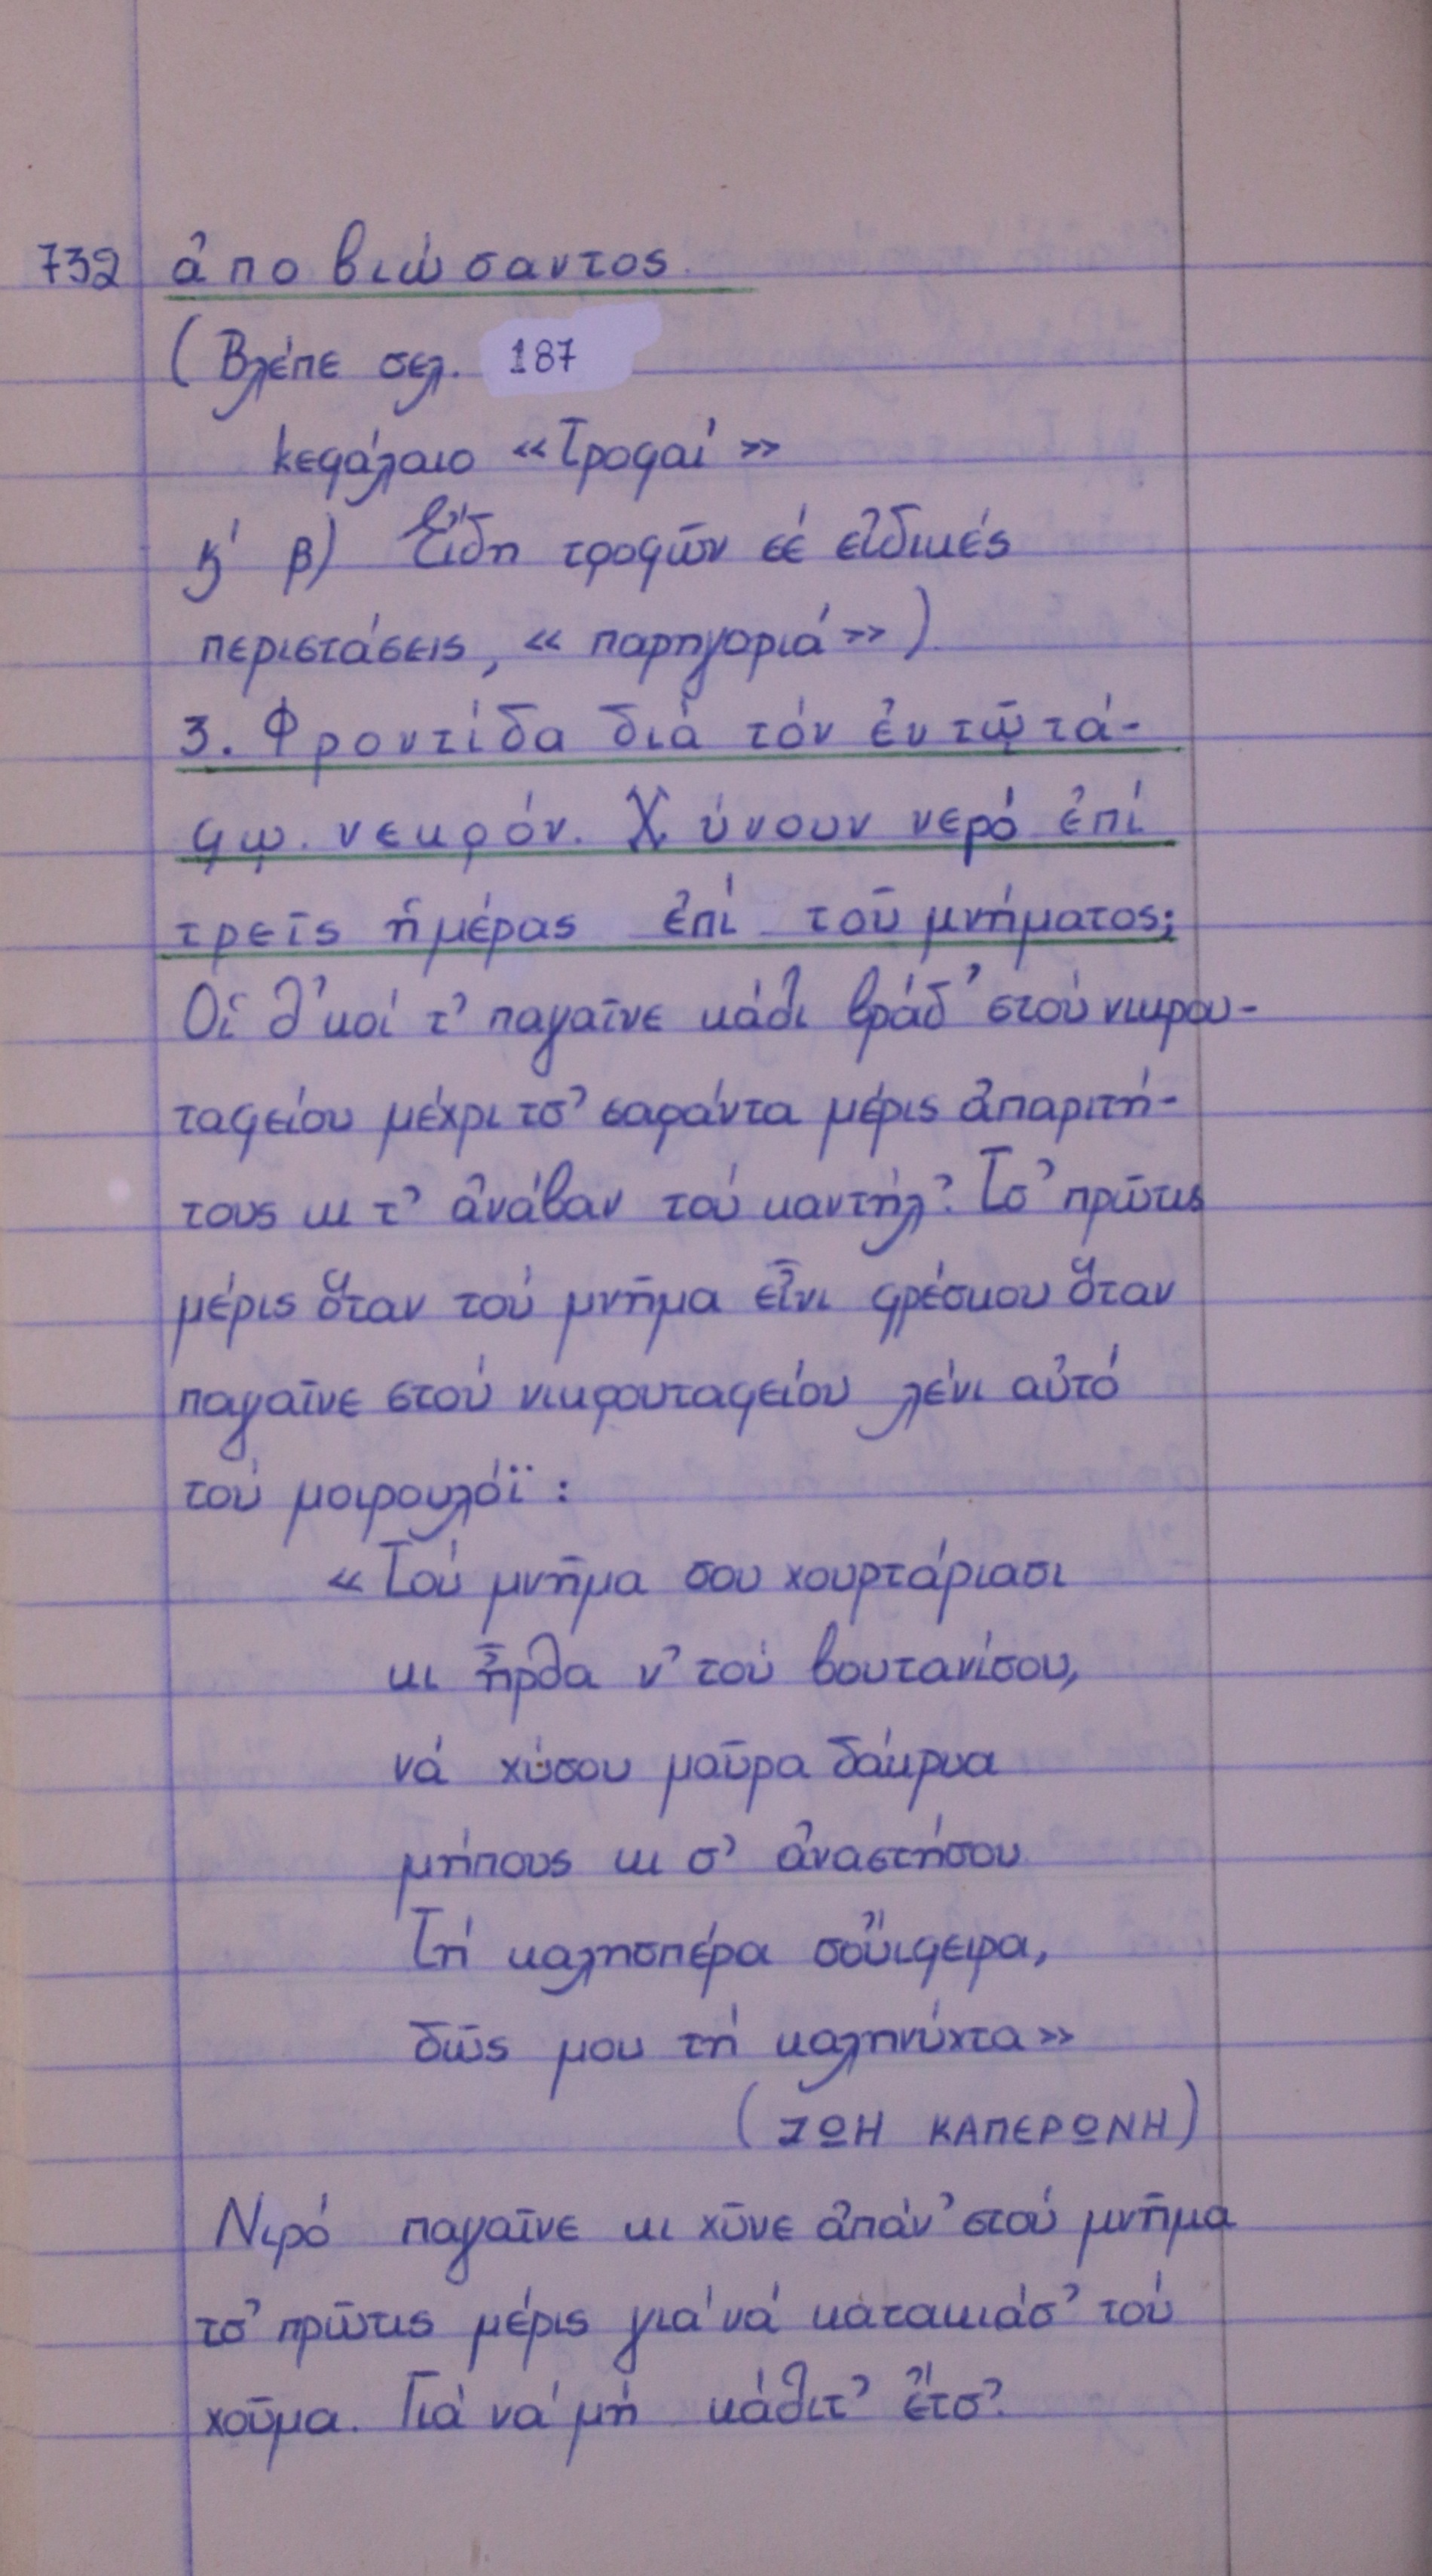 732 ἀποβιώσαντος.
(Βλέπε σελ. 187
κεφάλαιο «Τροφαί»
ϗ́ β) Εἴδη τροφῶν σέ εἰδικές
περιστάσεις, «παρηγοριά»).
3. Φροντίδα διά τόν ἐν τῷ τά-
φῳ. νεκρόν. Χύνουν νερό ἐπί
τρεῖς ἡμέρας ἐπί τοῦ μνήματος;
Οἱ δ᾿κοί τ᾿ παγαῖνε κάθι βράδ᾿ στού νικρου-
ταφείου μέχρι τσ᾿ σαράντα μέρις ἀπαριτή-
τους κι τ᾿ ἀνάβαν τού καντήλ᾿. Τσ᾿ πρῶτις
μέρις ὅταν τού μνῆμα εἶνι φρέσκου ὅταν
παγαῖνε στού νικρουταφείου λένι αὐτό
τού μοιρουλόϊ:
«Τού μνῆμα σου χουρτάριασι
κι ἦρθα ν᾿ τού βουτανίσου,
νά χύσου μαῦρα δάκρυα
μήπους κι σ᾿ ἀναστήσου
Τή καλησπέρα σοὔιφειρα,
δῶς μου τή καληνύχτα»
(ΖΩΗ ΚΑΠΕΡΩΝΗ)
Νιρό παγαῖνε κι χῦνε ἀπάν᾿ στού μνῆμα
τσ᾿ πρῶτις μέρις γιά νά κατακιάσ᾿ τού
χοῦμα. Γιά νά μή κάθιτ᾿ ἔτσ᾿.